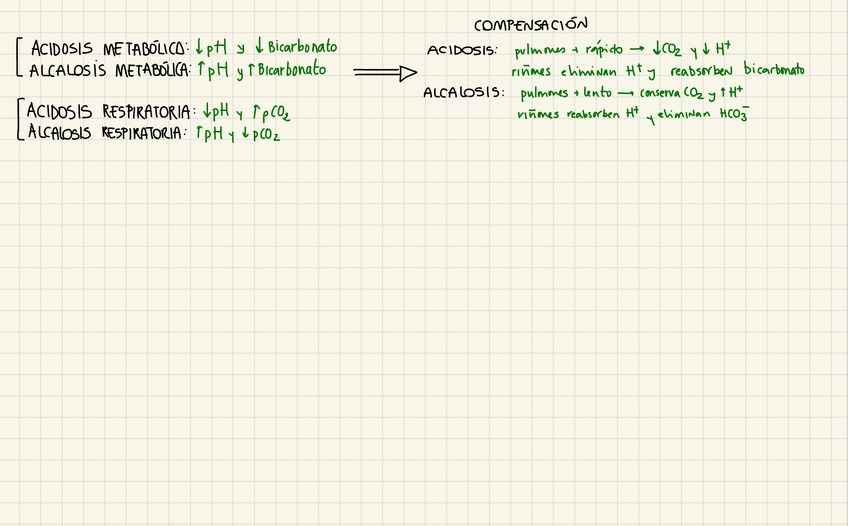 ACIDOSIS METABÓLICA: ↓pH y ↓Bicarbonato
ALCALOSIS METABÓLICA: ↑pH y ↑Bicarbonato
ACIDOSIS RESPIRATORIA: ↓pH y ↑pCO₂
ALCALOSIS RESPIRATORIA: ↑pH y ↓pCO₂
COMPENSACIÓN
ACIDOSIS: pulmones + rápido → ↓CO₂ y ↓H⁺
riñones eliminan H⁺ y reabsorben bicarbonato
ALCALOSIS: pulmones + lento → conserva CO₂ y ↑H⁺
riñones reabsorben H⁺ y eliminan HCO₃⁻